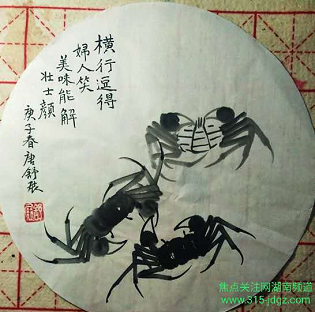 横行逗得
婦人笑
美味能解
壮士顏
庚子春唐舒殷
焦点关注网湖南频道
www.315-jdgz.com